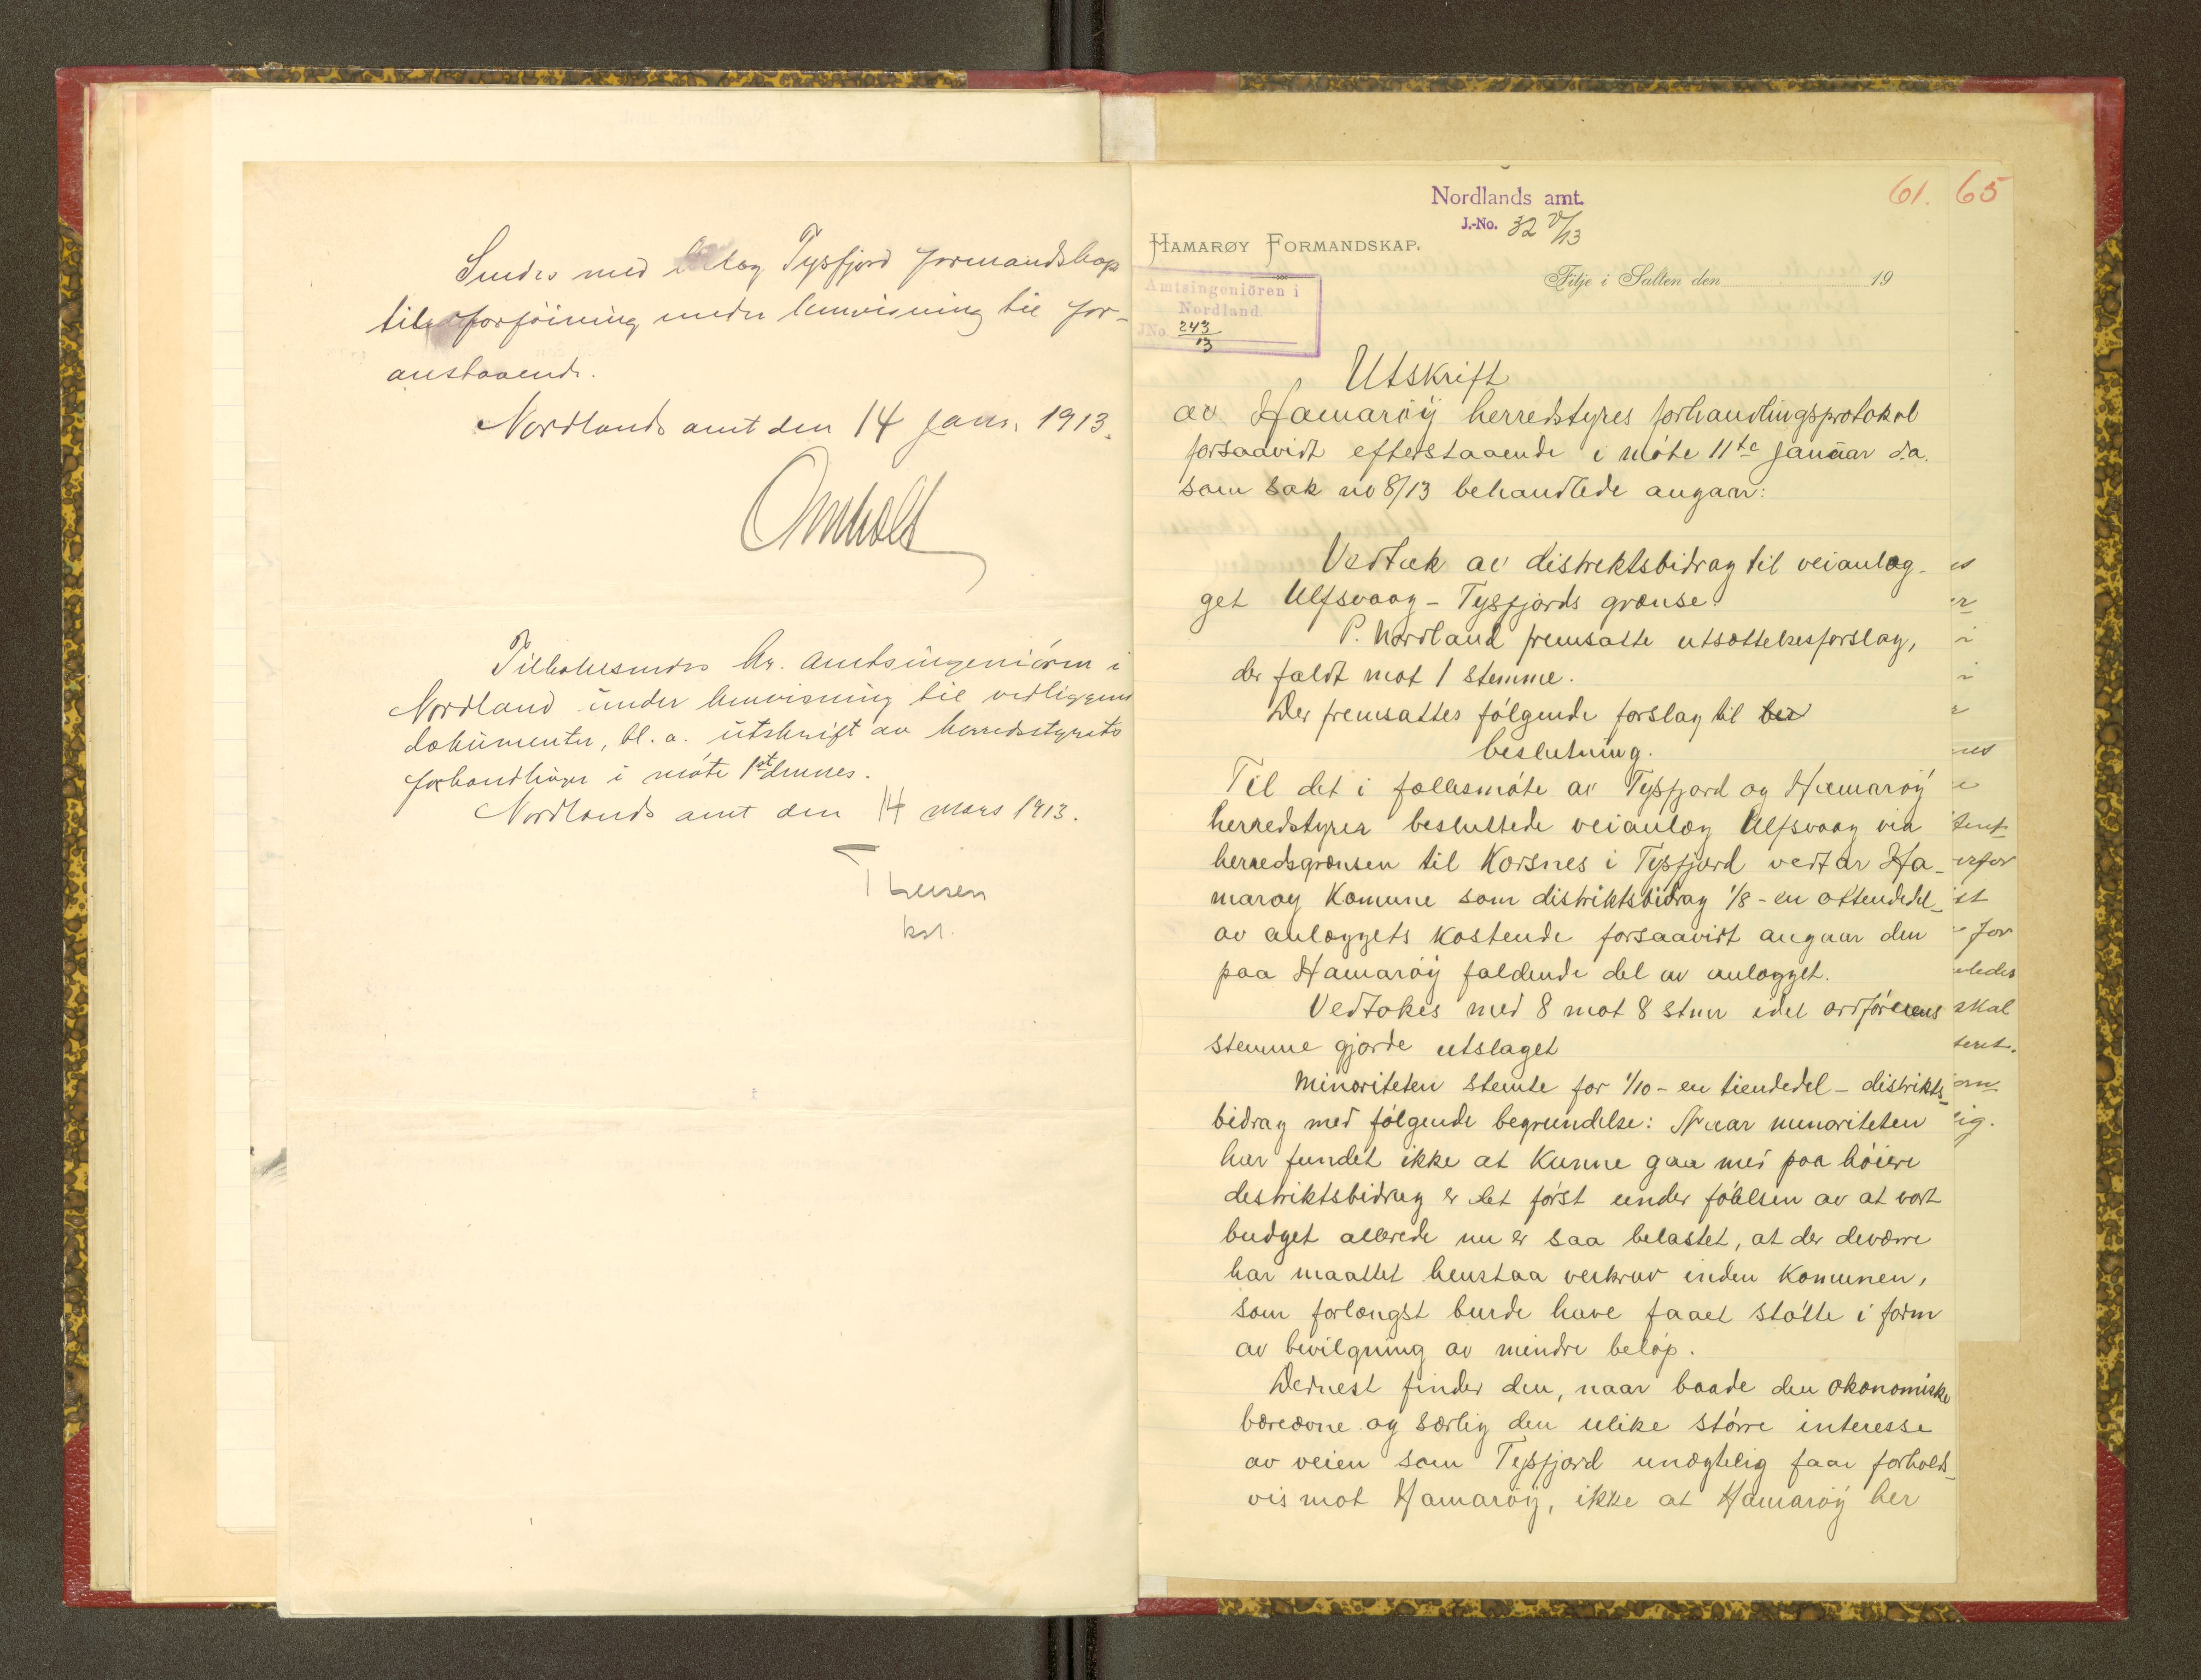 Sendes med bilag Tysfjord formandskap
til forføining under henvisning til for-
anstaaende.
Nordlands amt den 14 Janr. 1913.
Omholt
Tilbakesendes hr. Amtsingeniøren i
Nordland under henvisning til vedliggende
dokumenter, bl. a. utskrift av herredsstyrets
forhandlinger i møte 1ste dennes.
Nordlands amt den 14 mars 1913.
kst.
Nordlands amt.
J.-No. 32 /13
61. 65
HAMARØY FORMANDSKAP.
Filje i Salten den 19
Amtsingeniören i
Nordland.
JNo. 243
13
Utskrift
av Hamarøy herredstyres forhandlingsprotokol
forsaavidt efterstaaende i møte 11te Januar d.a.
som sak no 8/13 behandlede angaar:
Vedtak av distriktsbidrag til veianlæg-
get Ulfsvaag - Tysfjords grænse.
P. Nordland fremsatte utsættelsesforslag,
der faldt mot 1 stemme.
Der fremsattes følgende forslag til bes
beslutning.
Til det i fællesmøte av Tysfjord og Hamarøy
herredstyrer besluttede veianlæg Ulfsvaag via
herredsgrænsen til Korsnes i Tysfjord vedtar Ha-
marøy Komune som distriktsbidrag 1/8 - en ottendedel-
av anlæggets kostende forsaavidt angaar den
paa Hamarøy faldende del av anlægget.
Vedtokes med 8 mot 8 stmr idet ordførerens
stemme gjorde utslaget
Minoriteten stemte for 1/10 - en tiendedel - distrikts-
bidrag med følgende begrundelse: Naar minoriteten
har fundet ikke at kunne gaa med paa høiere
destriktsbidrag er det først under følelsen av at vort
budget allerede nu er saa belastet, at der deværre
har maattet henstaa veikrav inden Komunen,
som forlængst burde have faaet støtte i form
av bevilgning av mindre beløp.
Dernest finder den, naar baade den økonomiske
bæreævne og særlig den ulike større interesse
av veien som Tysfjord unægtelig faar forholds-
vis mot Hamarøy, ikke at Hamarøy her